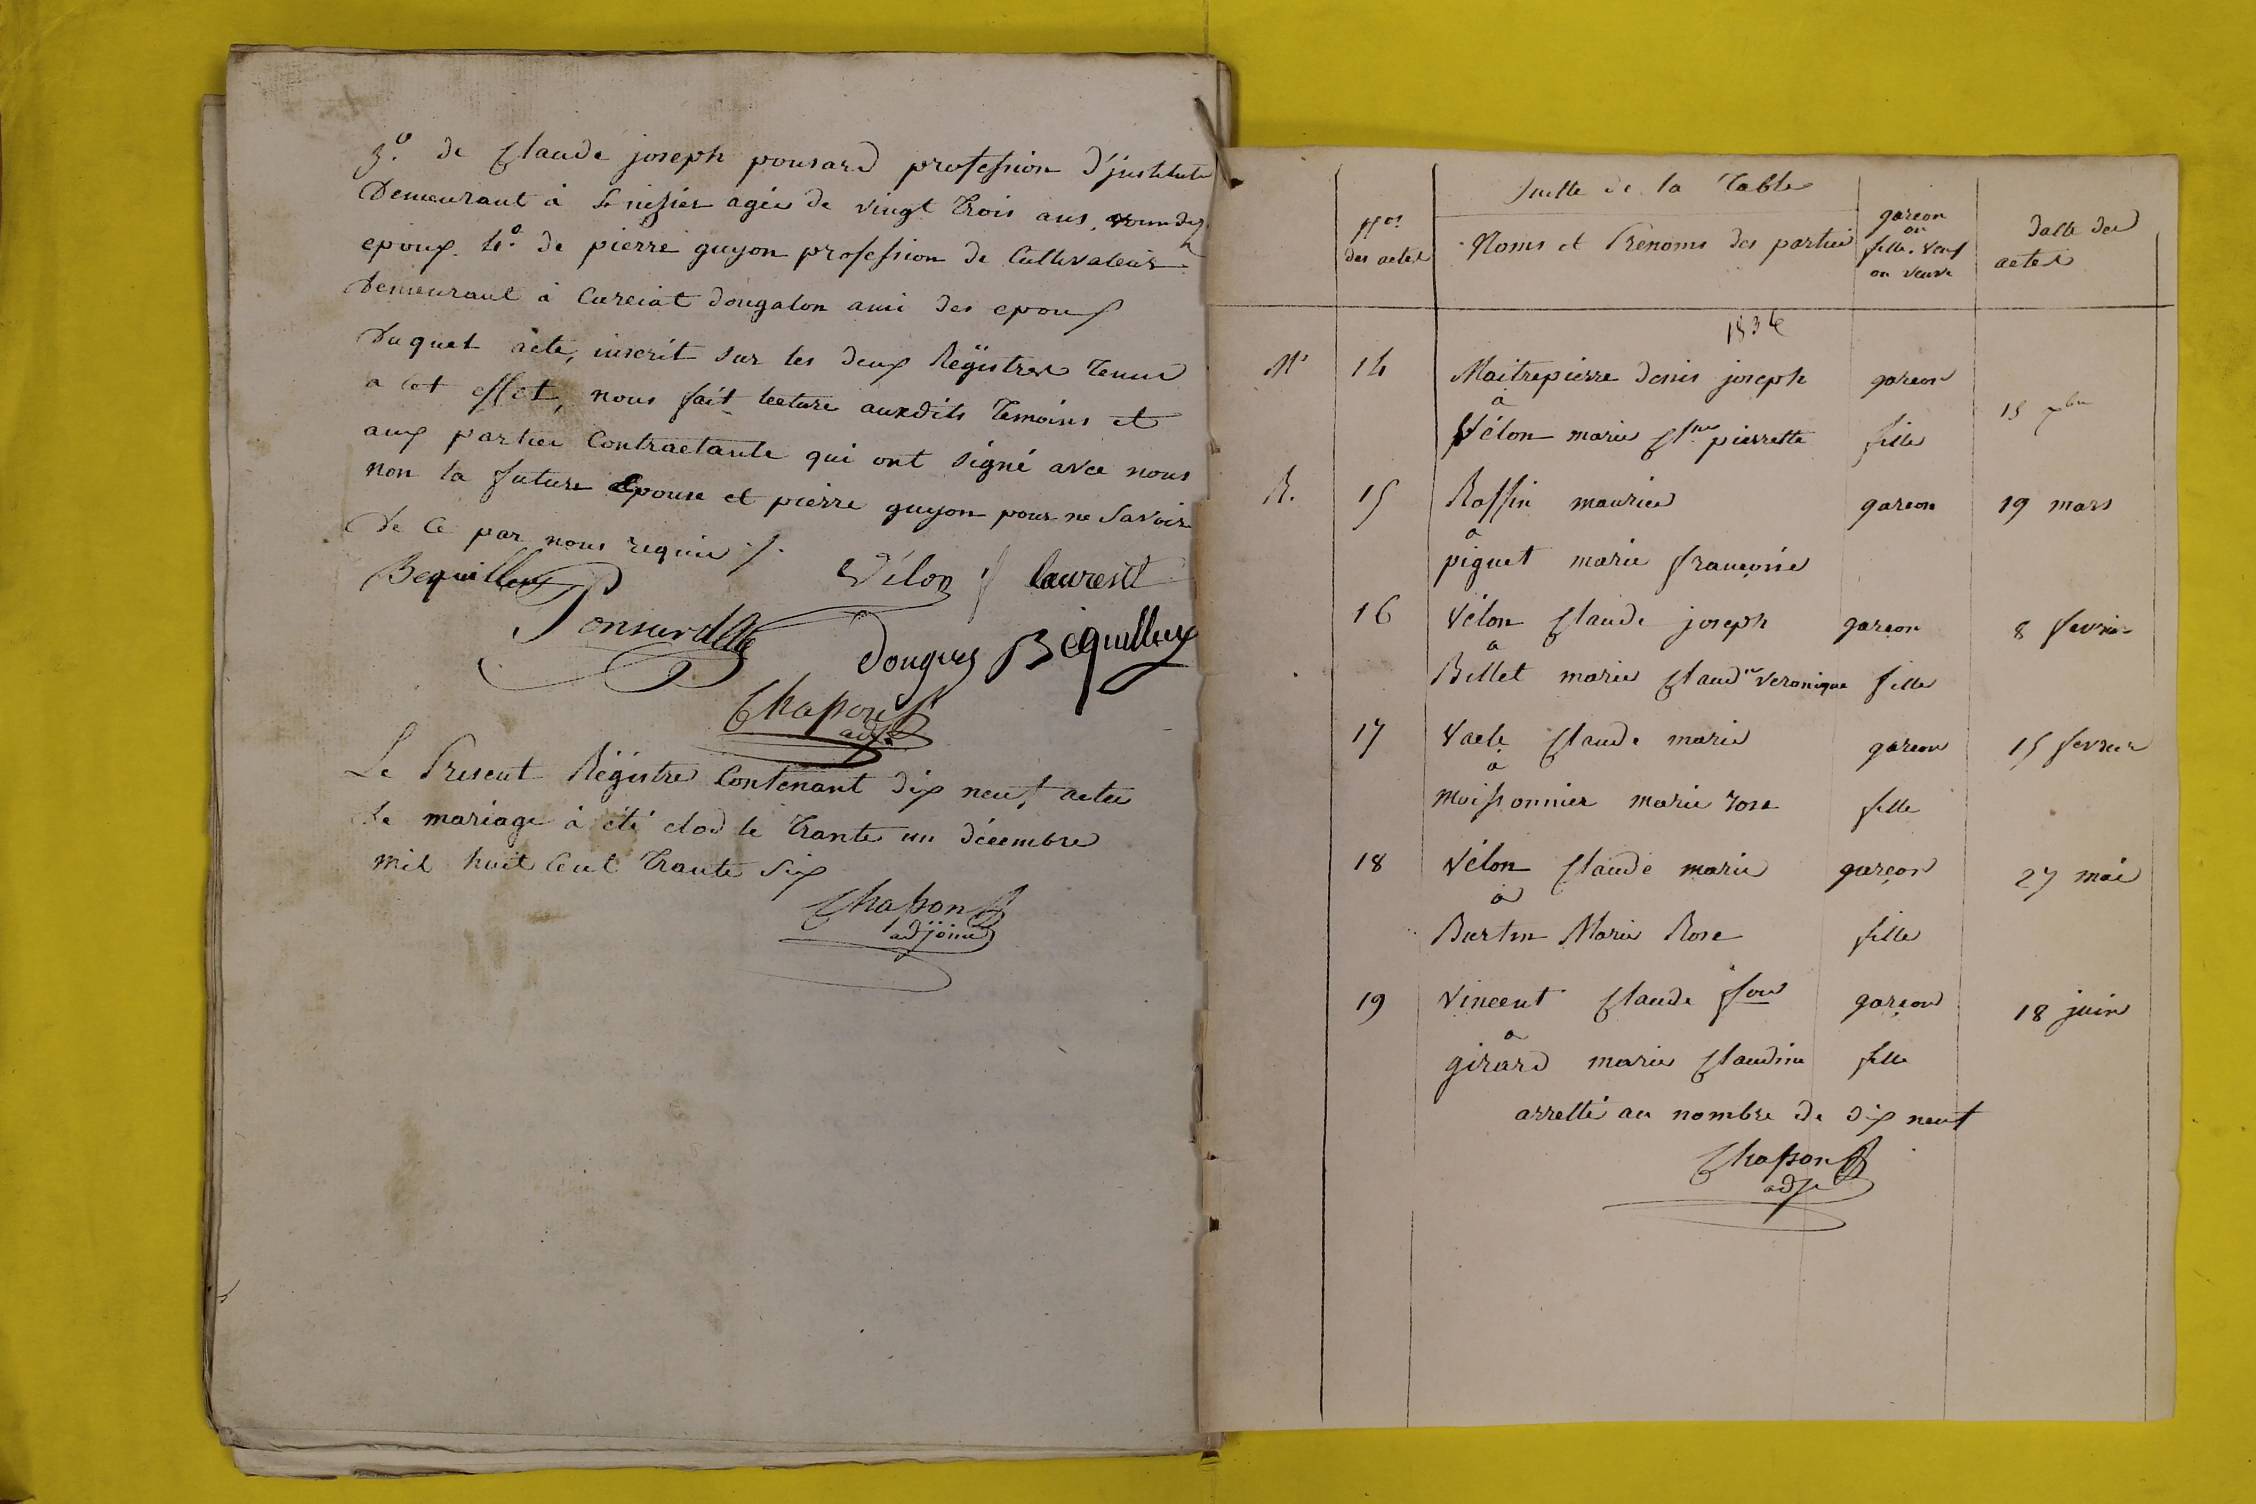 3.º de Claude joseph ponsard profession d'justitute
Demeurant à St nizier agée de vingt trois ans, 
epoux. 4º. de pierre guyon profession de Cultivateur
Demeurant à Curciat dongalon ami des epoux
Duquel acte, inscrit sur les deux Régistres tenus
a cet effet, nous fait lecture auxdits temoins et
aux parties Contractante qui ont signé avec nous
non la future Epouse et pierre guyon pour ne savoir
De Ce par nous requis ./.
Bequilleux Vélon laurent
Ponsard
Donguy Bequilleux
Chapon
adj.
Le Present Régistre Contenant dix neuf actes
de mariage à été clod le trante un décembre
mil huit Cent trante Six
Chapon
adjoint
Suitte de la Table
Nos des actes
Noms et Prénoms des parties
garcon ou fille. veuf ou veuve
datte des actes
1836
M 14 Maitrepierre denis joseph garcon
à
15 xbre
Vélon marie Clne pierrette fille
R. 15 Roffin maurice garcon 19 mars
à
piguet marie françoise
16 Vélon Claude joseph garcon 8 fevrier
à
Billet marie Claudne veronique fille
17 Vacle Claude marie garcon 15 fevrier
à
Moissonnier marie rose fille
18 Vélon Claude marie garçon 27 mai
à
Burtin Marie Rose fille
19 Vincent Claude fois garçon 18 juin
à
girard marie Claudine fille
arretté au nombre de dix neuf
Chapon
adj